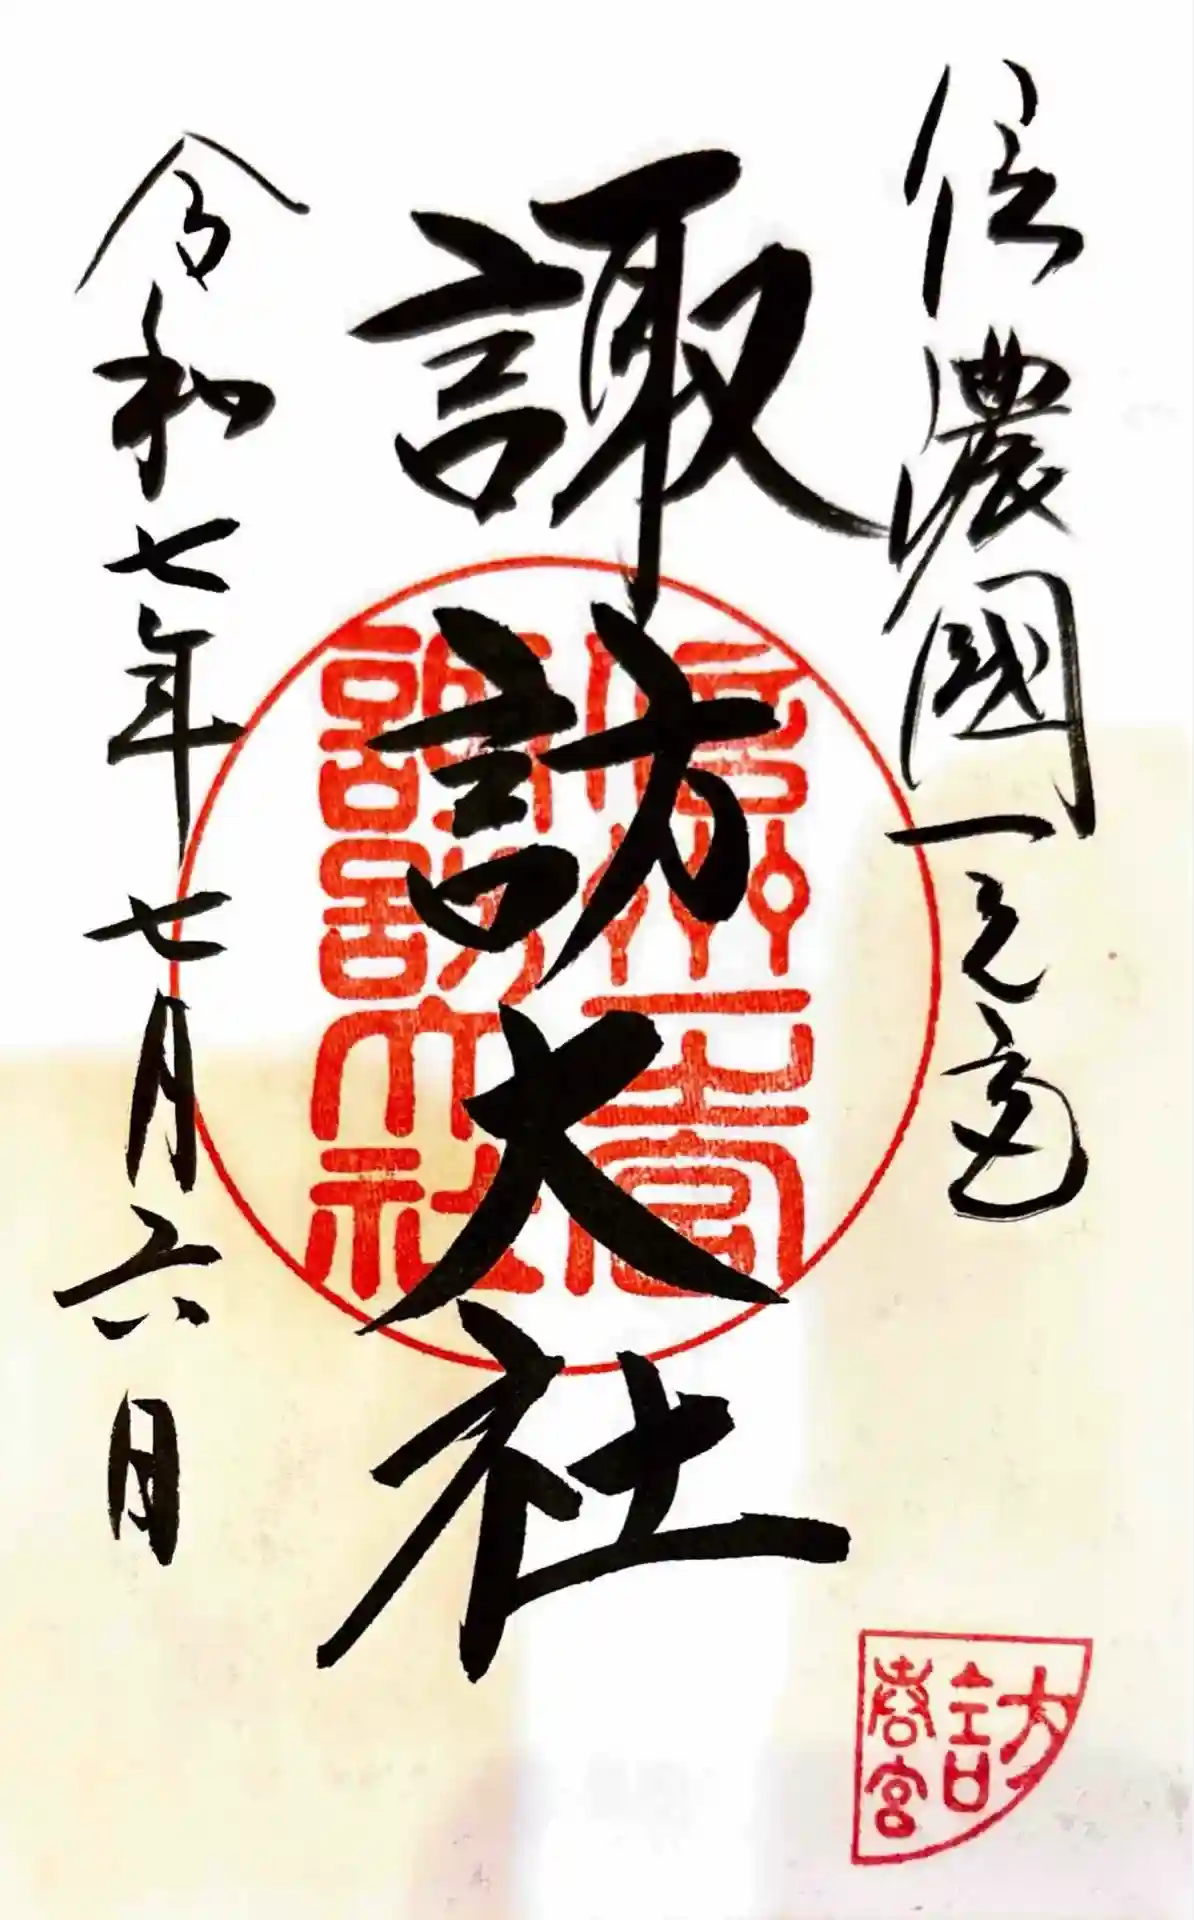 信濃國一之宮
諏訪大社
令和七年七月六日
信州一之宮
諏訪大社
訪
春宮